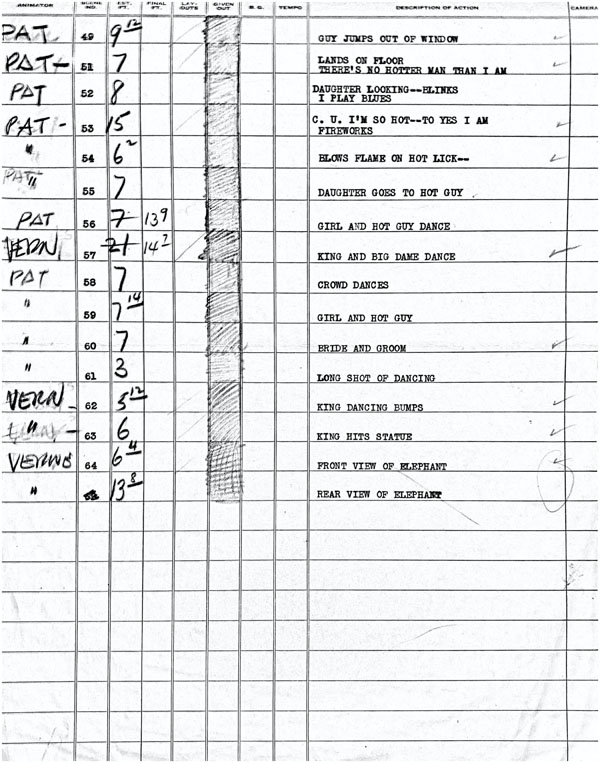 ANIMATOR SCENE NO. EST. FT. FINAL FT. LAY-OUTS GIVEN OUT B. G. TEMPO DESCRIPTION OF ACTION CAMERA
PAT 49 9 12 GUY JUMPS OUT OF WINDOW
PAT - 51 7 LANDS ON FLOOR
THERE'S NO HOTTER MAN THAN I AM
PAT 52 8 DAUGHTER LOOKING--BLINKS
I PLAY BLUES
PAT - 53 15 C. U. I'M SO HOT--TO YES I AM
FIREWORKS
" 54 6 2 BLOWS FLAME ON HOT LICK--
" 55 7 DAUGHTER GOES TO HOT GUY
PAT 56 7 13 9 GIRL AND HOT GUY DANCE
VERN 57 21 14 2 KING AND BIG DAME DANCE
PAT 58 7 CROWD DANCES
" 59 7 14 GIRL AND HOT GUY
" 60 7 BRIDE AND GROOM
" 61 3 LONG SHOT OF DANCING
VERN - 62 3 12 KING DANCING BUMPS
" - 63 6 KING HITS STATUE
VERN 64 6 4 FRONT VIEW OF ELEPHANT
" 13 8 REAR VIEW OF ELEPHANT